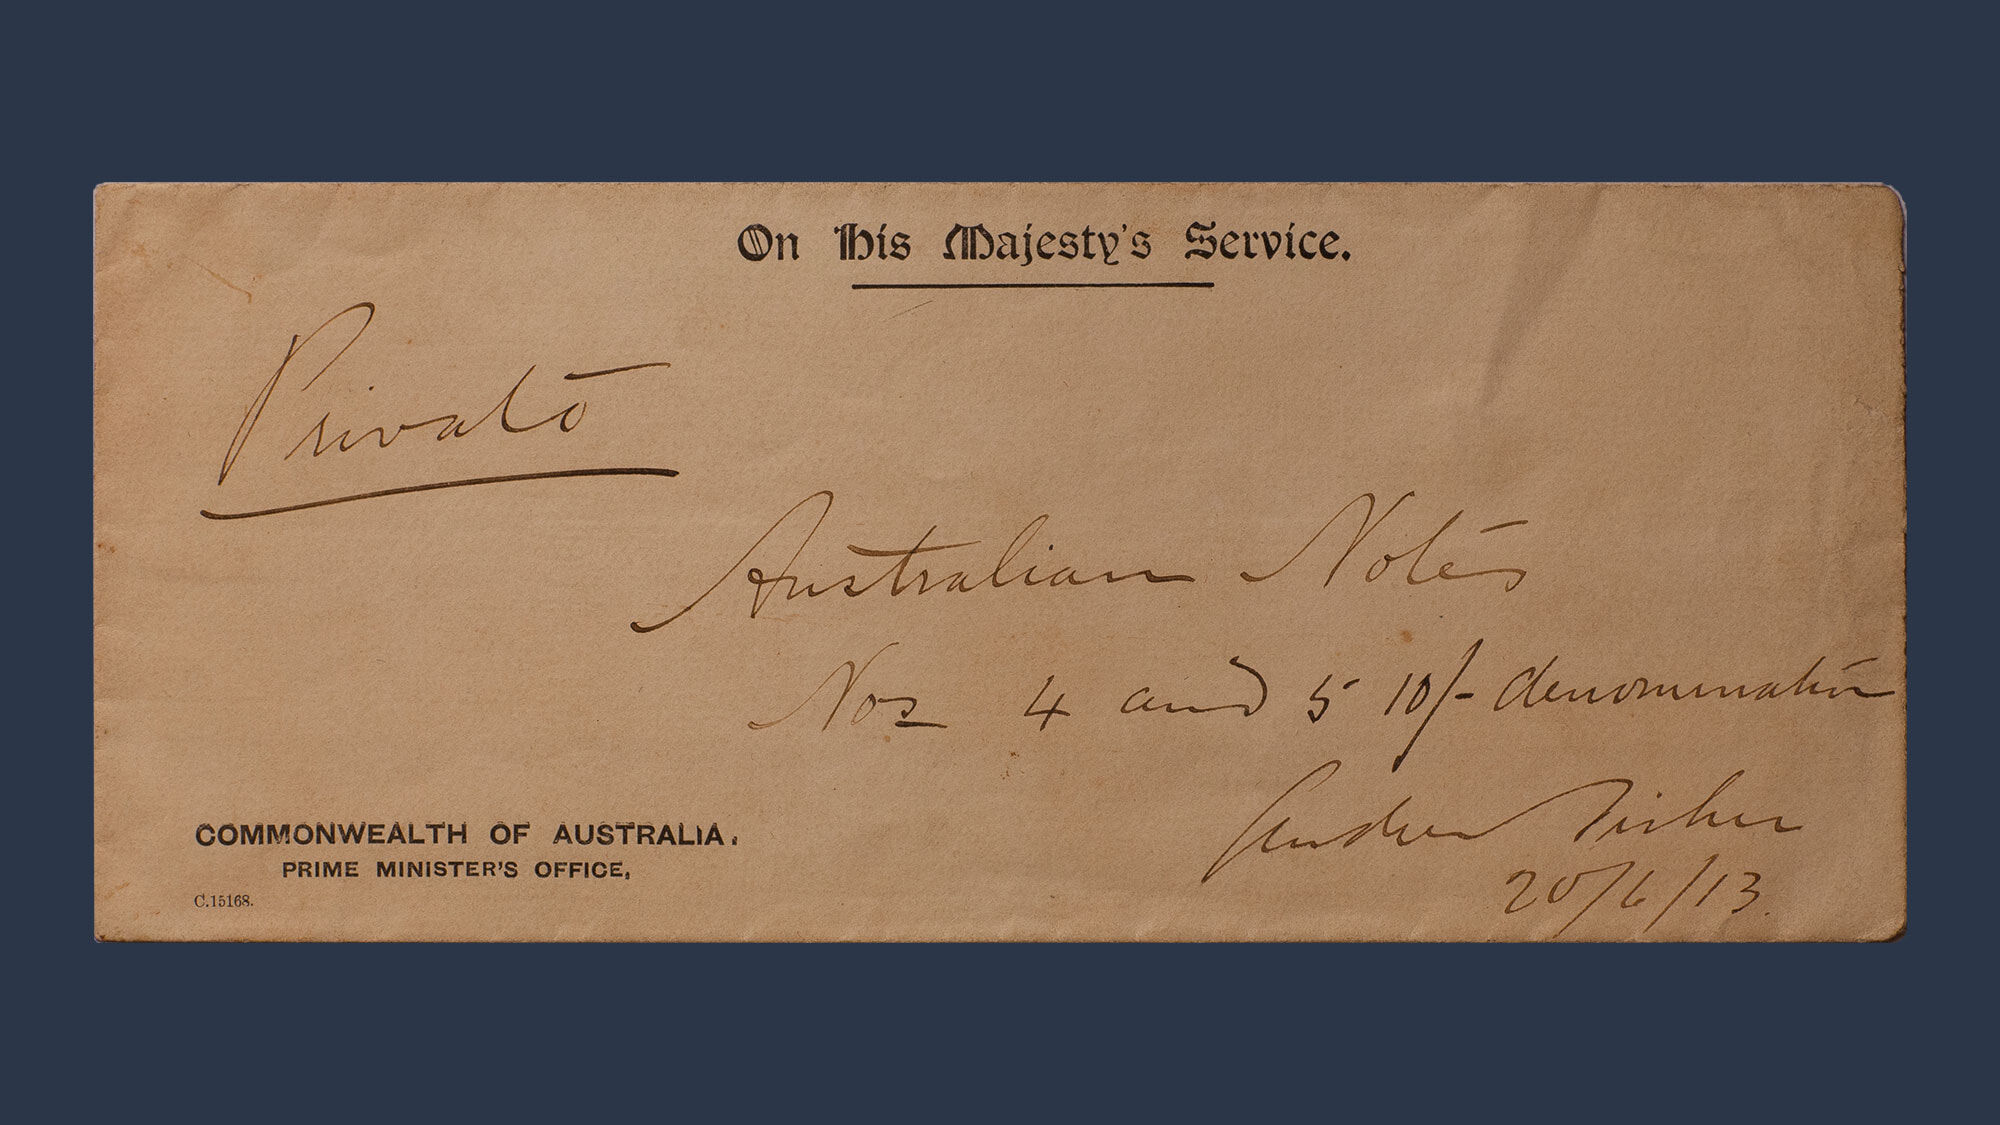 On His Majesty's Service.
Private
Australian Notes
Nos 4 and 5 10/- denomination
Andrew Fisher
20/6/13.
COMMONWEALTH OF AUSTRALIA.
PRIME MINISTER'S OFFICE,
C.15168.